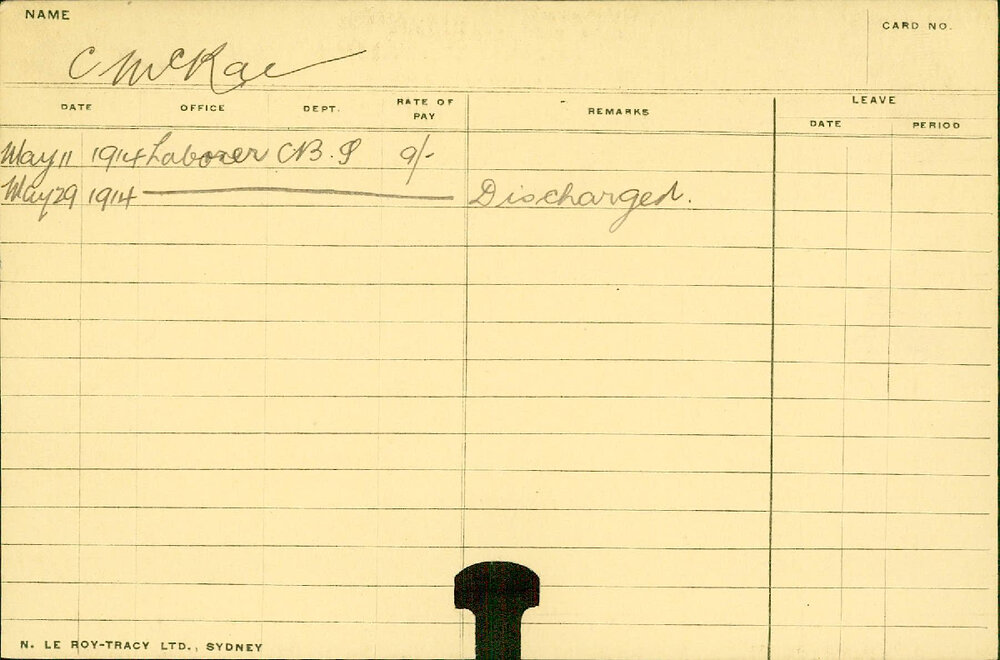 NAME
CARD NO.
C McRae
DATE OFFICE DEPT. RATE OF PAY REMARKS LEAVE
DATE PERIOD
May 11 1914 Laborer CB.S 9/-
May 29 1914 Discharged.
N. LE ROY-TRACY LTD., SYDNEY